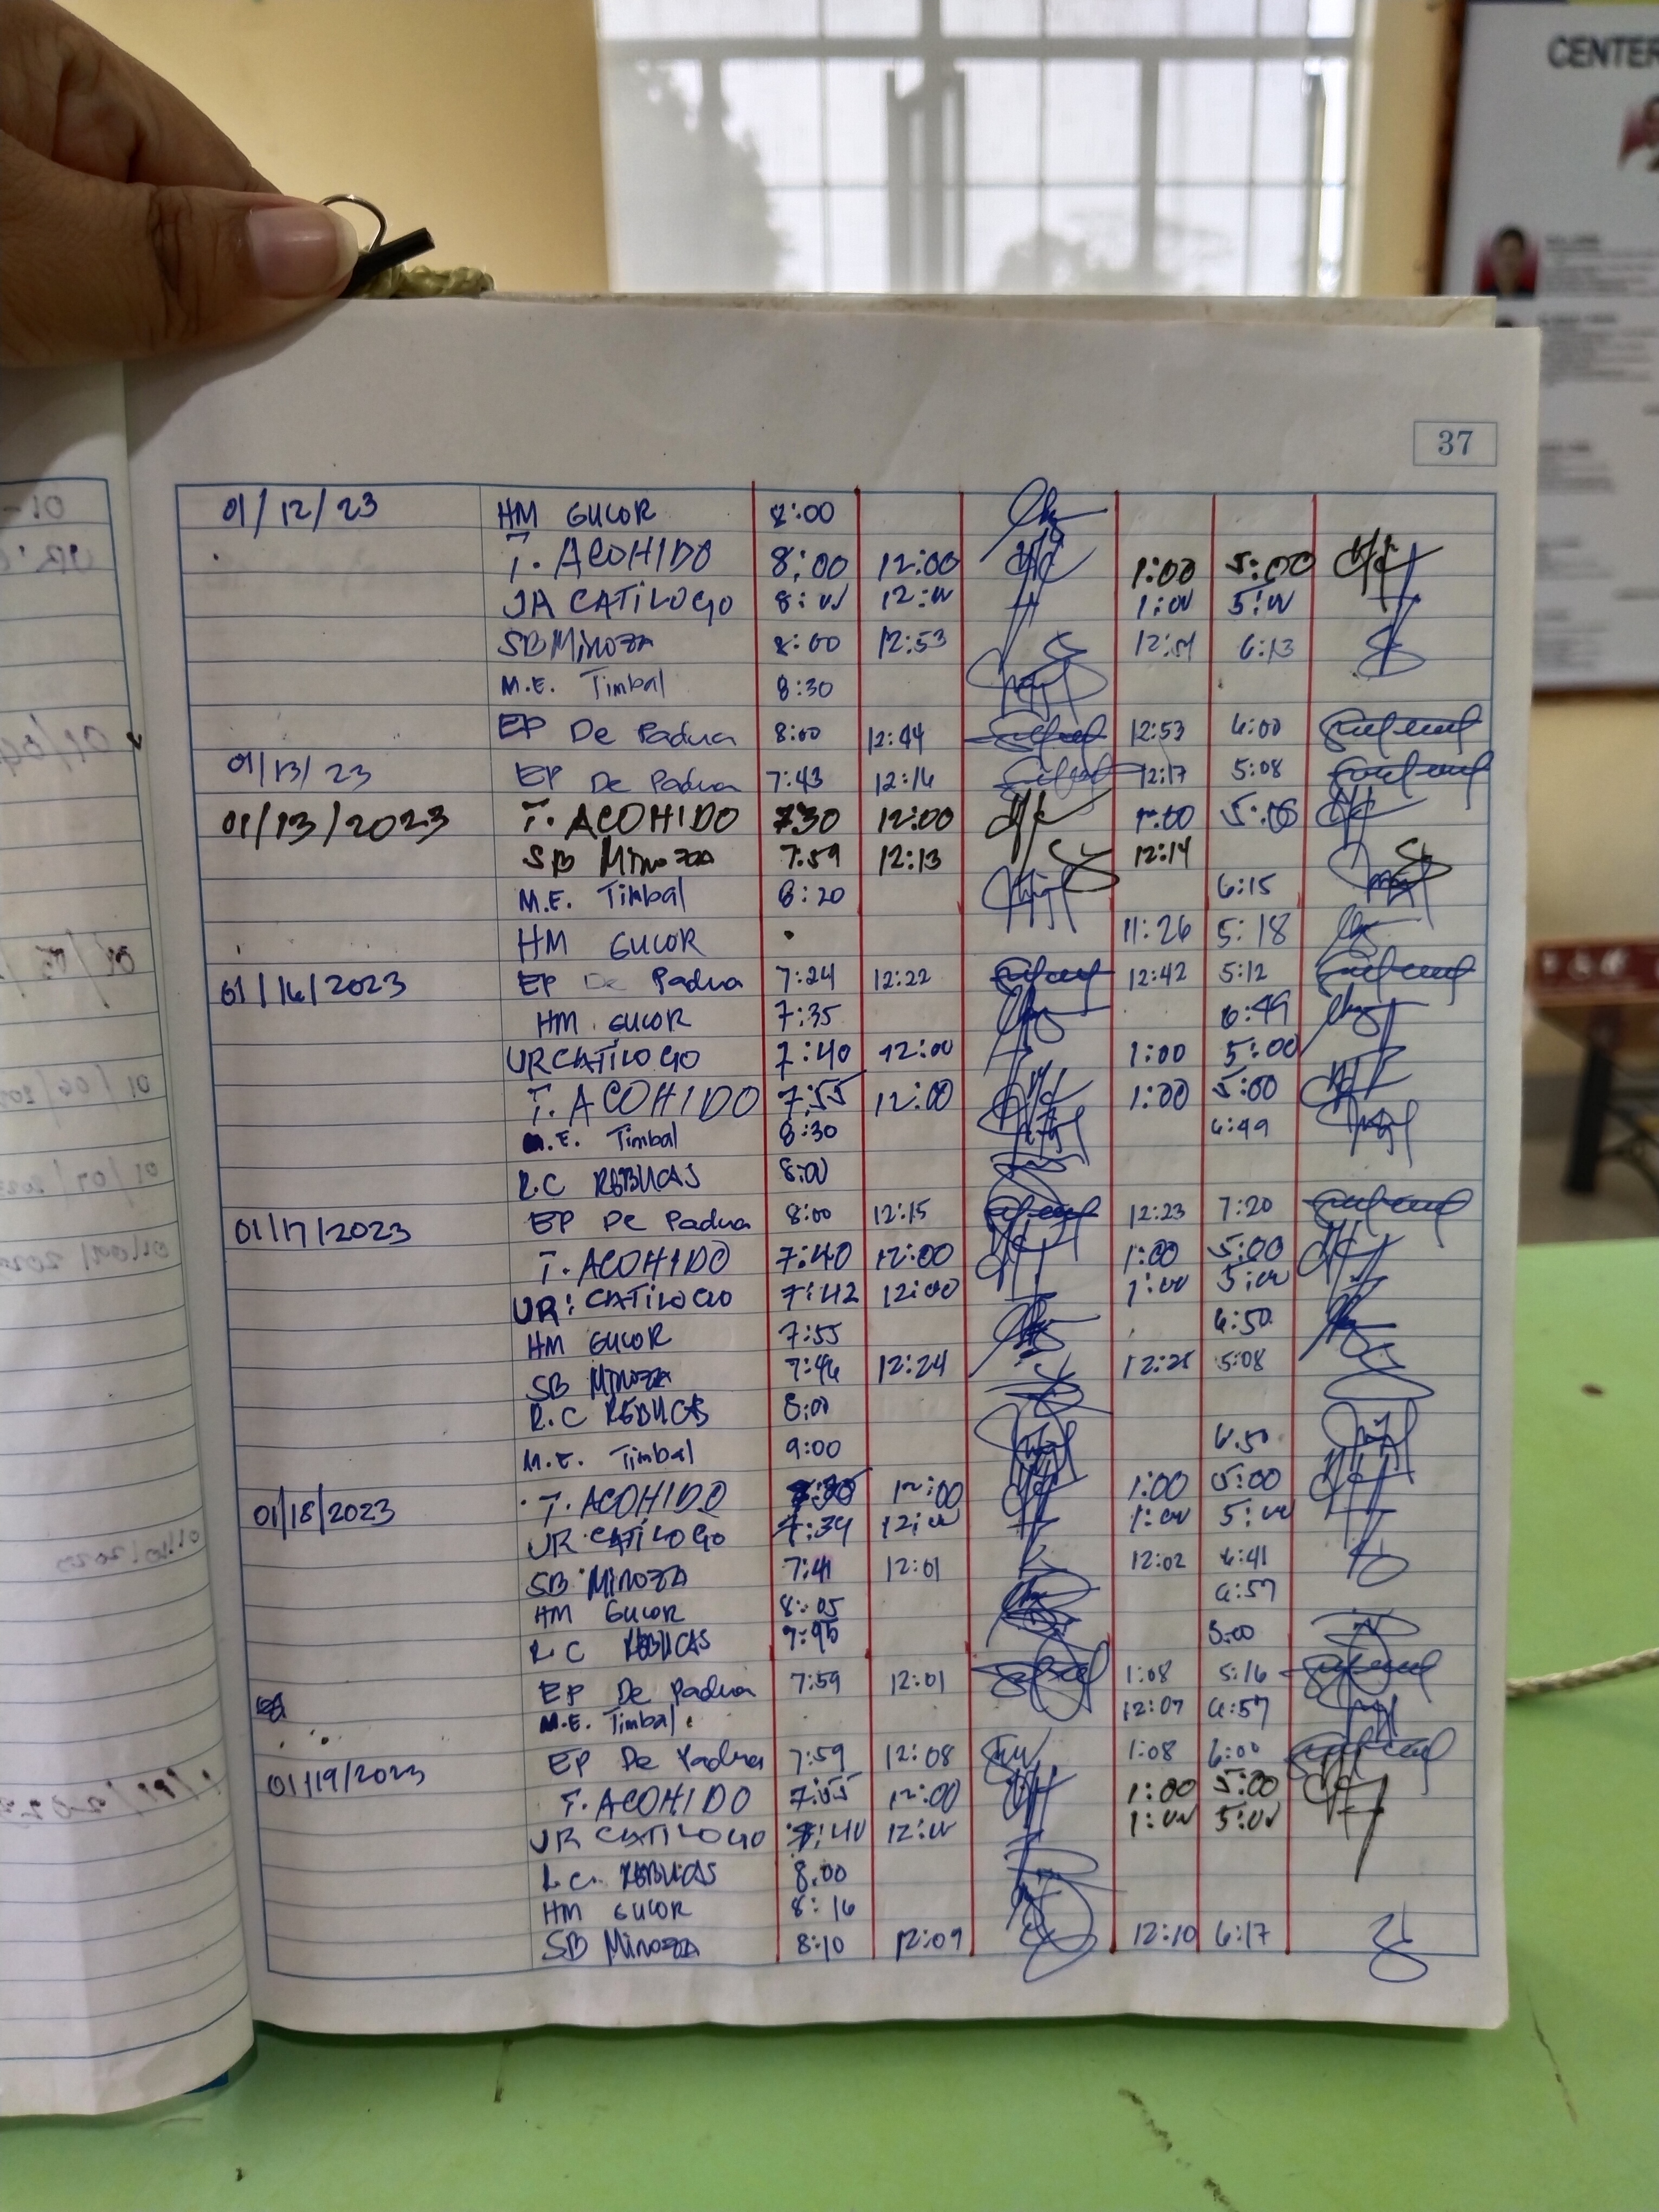 CENTER
37
01/12/23 HM GUCOR 8:00
T. ACOHIDO 8:00 12:00 1:00 5:00
CATILOGO
SB Minoza 8:00 12:53 6:13
M.E. Timbal 8:30
EP De Padua 8:00 12:44 12:53 6:00
01/13/23 EP De Padua 7:43 12:16 12:17 5:08
01/13/2023 T. ACOHIDO 7:30 12:00 1:00
SB Minoza 7:59 12:13 12:14
M.E. Timbal 8:20 6:15
HM GUCOR 11:26 5:18
01/16/2023 EP De Padua 7:24 12:22 12:42 5:12
HM GUCOR 7:35 6:49
UR CATILOGO 7:40 12:00 1:00 5:00
T. ACOHIDO 7:55 12:00 1:00 5:00
M.E. Timbal 8:30 6:49
R.C REBUCAS 8:00
01/17/2023 EP De Padua 8:00 12:15 12:23 7:20
T. ACOHIDO 7:40 12:00 1:00 5:00
UR CATILOGO 7:42 12:00 1:00 5:00
HM GUCOR 7:55 6:50
SB Minoza 7:46 12:24 12:25 5:08
R.C REBUCAS 8:00
M.E. Timbal 9:00 6:50
01/18/2023 T. ACOHIDO 12:00 1:00 5:00
UR CATILOGO 7:39 12:00 1:00 5:00
SB Minoza 7:41 12:01 12:02 6:41
HM GUCOR 8:05 6:57
R.C REBUCAS 5:00
EP De Padua 7:59 12:01 1:08 5:16
M.E. Timbal 12:07 6:57
01/19/2023 EP De Padua 7:59 12:08 1:08 6:00
T. ACOHIDO 7:55 12:00 1:00 5:00
UR CATILOGO 7:40 12:00 1:00 5:00
R.C. REBUCAS 8:00
HM GUCOR 8:16
SB Minoza 8:10 12:09 12:10 6:17